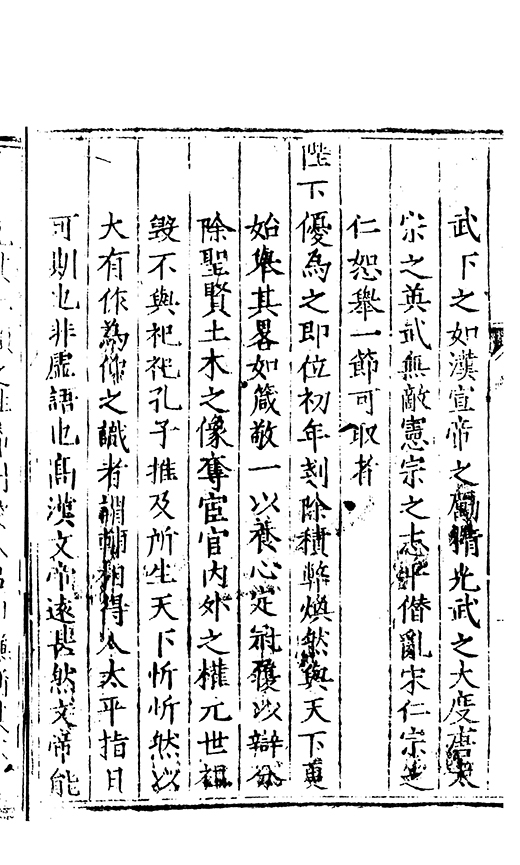 武下之如漢宣帝之勵精光武之大度唐太
宗之英武無敵憲宗之志平僭亂宋仁宗之
仁恕舉一節可取者
陛下優為之即位初年剗除積弊煥然與天下更
始舉其畧如箴敬一以養心定冠履以辯分
除聖賢土木之像奪宦官內外之權元世祖
毀不與祀祀孔子推及所生天下忻忻然以
大有作為仰之識者謂輔相得人太平指日
可期也非虛語也高漢文帝遠甚然文帝能